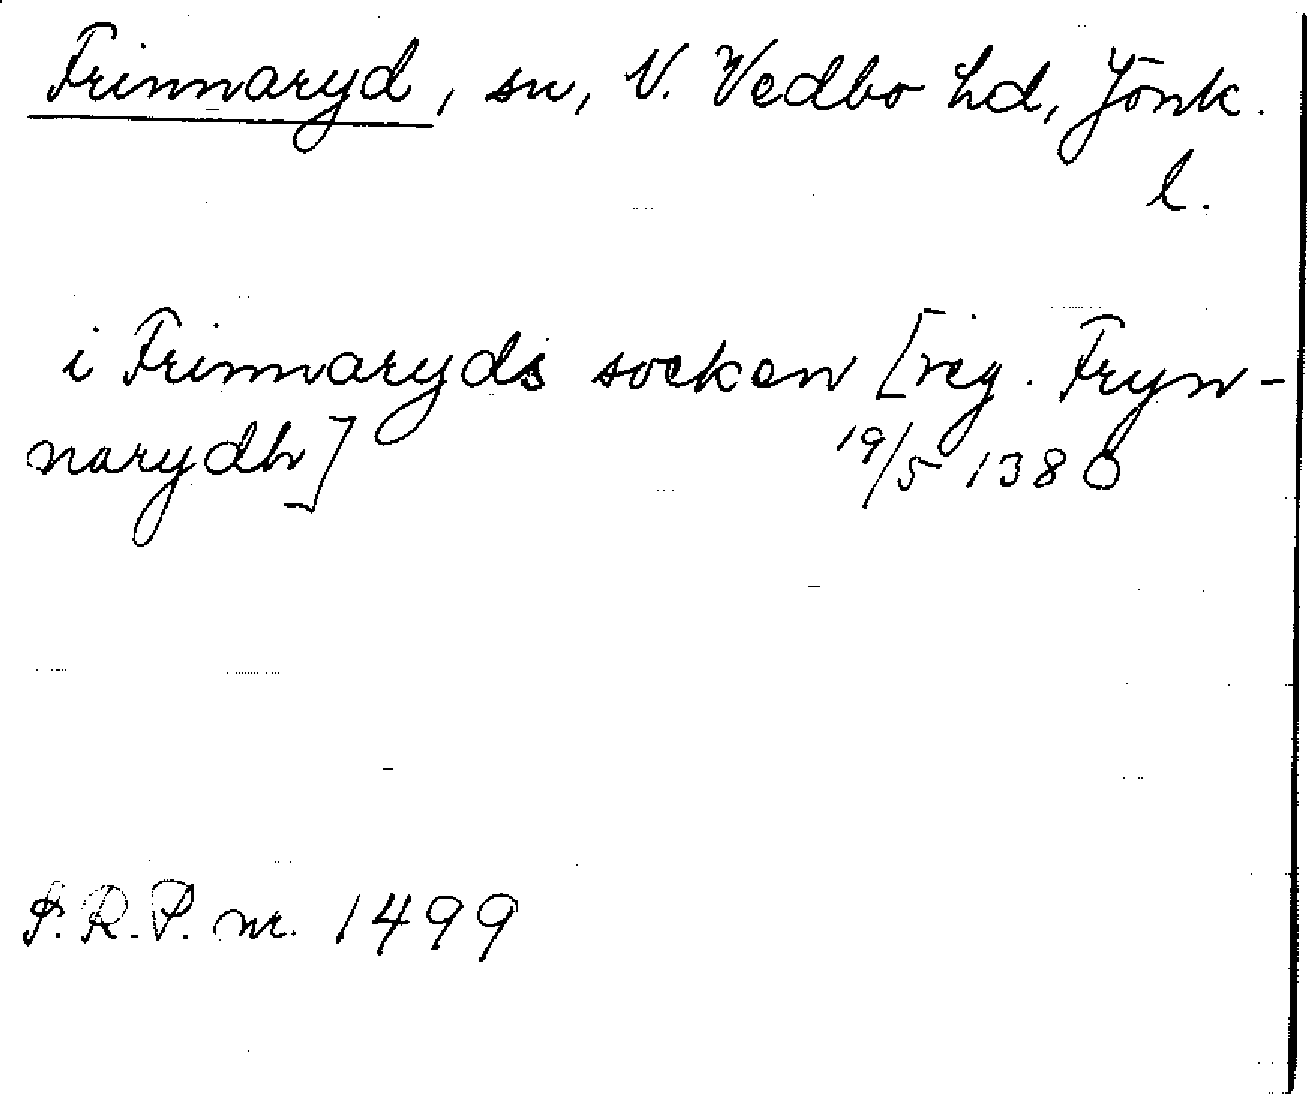 Frinnaryd, sn, N. Vedbo hd, Jönk.
l.
i Frinnaryds socken [reg. Fryn-
narydh] 19/5 1380
S.R.P. nr. 1499